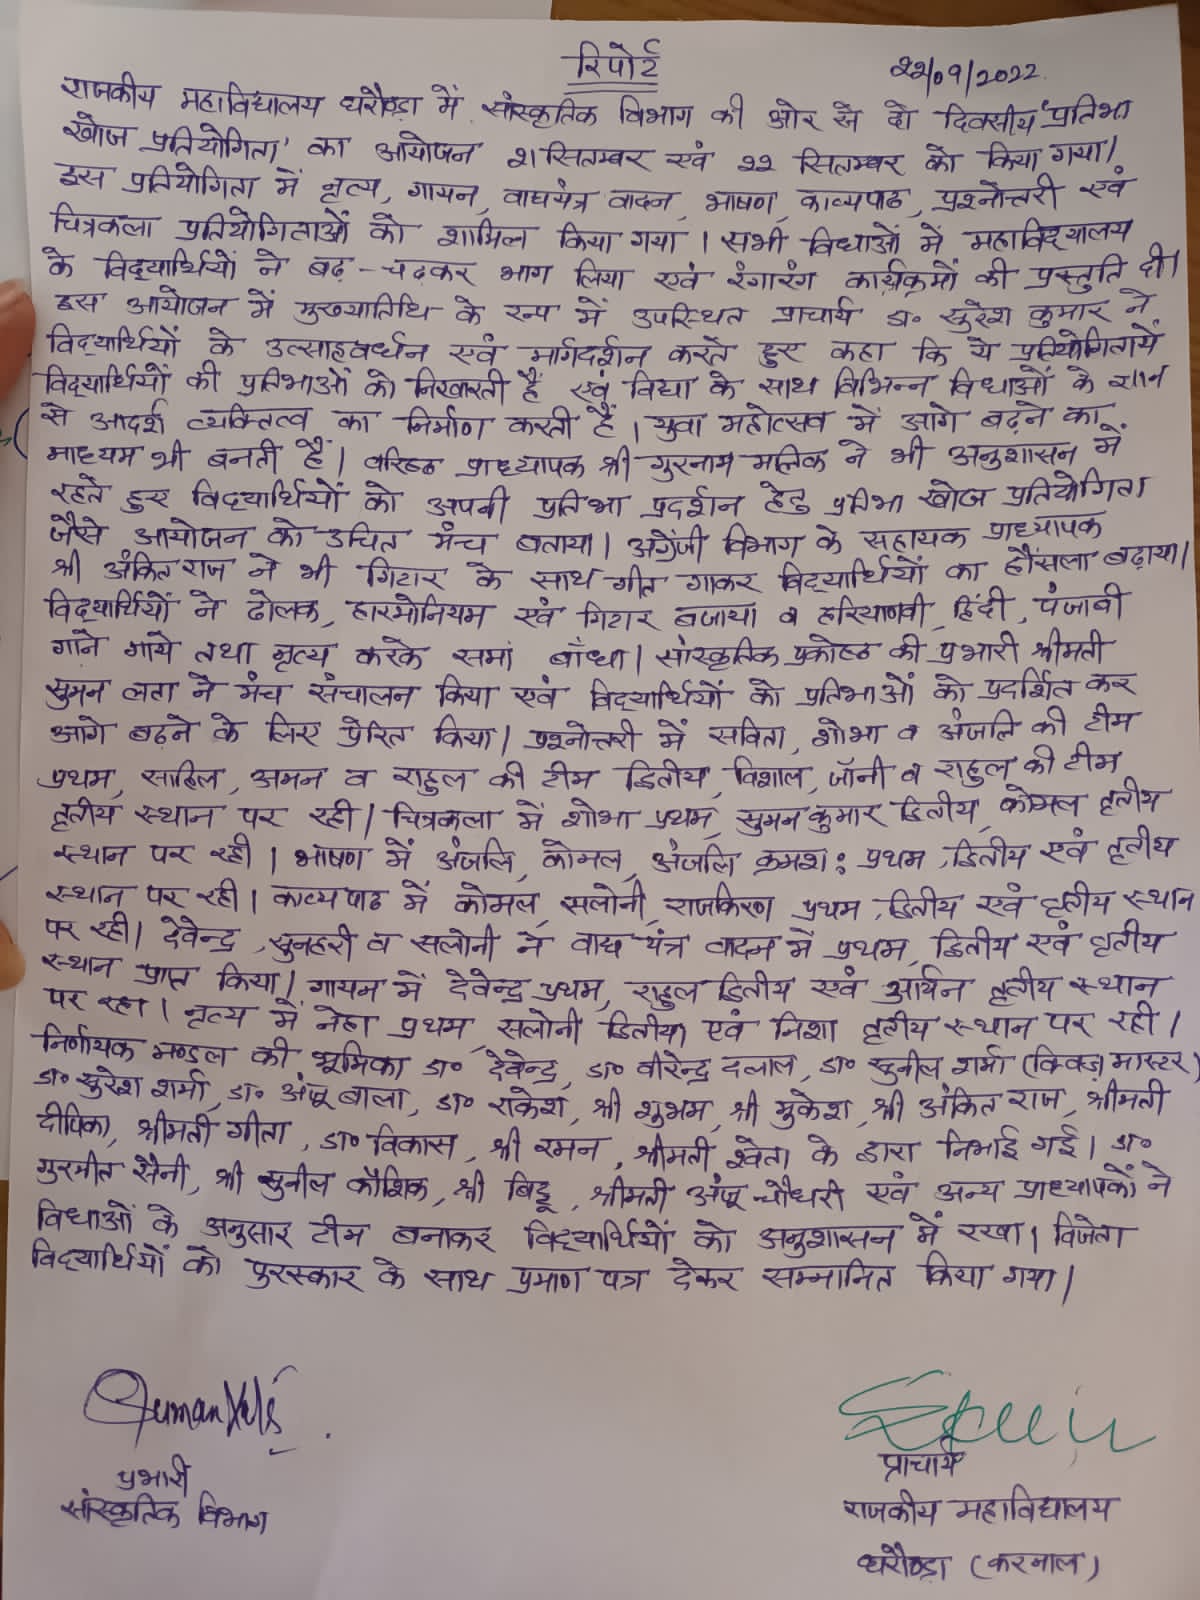 रिपोर्ट
22/09/2022
राजकीय महाविद्यालय घरौण्डा में सांस्कृतिक विभाग की ओर से दो दिवसीय 'प्रतिभा
खोज प्रतियोगिता' का आयोजन 21 सितम्बर एवं 22 सितम्बर को किया गया।
इस प्रतियोगिता में नृत्य, गायन, वाद्ययंत्र वादन, भाषण, काव्यपाठ, प्रश्नोत्तरी एवं
चित्रकला प्रतियोगिताओं को शामिल किया गया । सभी विधाओं में महाविद्यालय
के विद्यार्थियों ने बढ़-चढ़कर भाग लिया एवं रंगारंग कार्यक्रमों की प्रस्तुति दी।
इस आयोजन में मुख्यातिथि के रूप में उपस्थित प्राचार्य डा॰ सुरेश कुमार ने
विद्यार्थियों के उत्साहवर्धन एवं मार्गदर्शन करते हुए कहा कि ये प्रतियोगितायें
विद्यार्थियों की प्रतिभाओं को निखारती हैं एवं विद्या के साथ विभिन्न विधाओं के ज्ञान
से आदर्श व्यक्तित्व का निर्माण करती हैं । युवा महोत्सव में आगे बढ़ने का
माध्यम भी बनती हैं । वरिष्ठ प्राध्यापक श्री गुरनाम मलिक ने भी अनुशासन में
रहते हुए विद्यार्थियों को अपनी प्रतिभा प्रदर्शन हेतु प्रतिभा खोज प्रतियोगिता
जैसे आयोजन को उचित मंच बताया। अंग्रेजी विभाग के सहायक प्राध्यापक
श्री अंकित राज ने भी गिटार के साथ गीत गाकर विद्यार्थियों का हौंसला बढ़ाया।
विद्यार्थियों ने ढोलक, हारमोनियम एवं गिटार बजाया व हरियाणवी, हिंदी, पंजाबी
गाने गाये तथा नृत्य करके समां बाँधा। सांस्कृतिक प्रकोष्ठ की प्रभारी श्रीमती
सुमन लता ने मंच संचालन किया एवं विद्यार्थियों को प्रतिभाओं को प्रदर्शित कर
आगे बढ़ने के लिए प्रेरित किया। प्रश्नोत्तरी में सविता, शोभा व अंजलि की टीम
प्रथम, साहिल, अमन व राहुल की टीम द्वितीय, विशाल, जॉनी व राहुल की टीम
तृतीय स्थान पर रही। चित्रकला में शोभा प्रथम, सुमन कुमार द्वितीय, कोमल तृतीय
स्थान पर रही । भाषण में अंजलि, कोमल, अंजलि क्रमशः प्रथम, द्वितीय एवं तृतीय
स्थान पर रही। काव्य पाठ में कोमल, सलोनी, राजकिरण प्रथम, द्वितीय एवं तृतीय स्थान
पर रही। देवेन्द्र, सुनहरी व सलोनी ने वाद्य यंत्र वादन में प्रथम, द्वितीय एवं तृतीय
स्थान प्राप्त किया। गायन में देवेन्द्र प्रथम, राहुल द्वितीय एवं आर्यन तृतीय स्थान
पर रहा । नृत्य में नेहा प्रथम, सलोनी द्वितीय एवं निशा तृतीय स्थान पर रही ।
निर्णायक मण्डल की भूमिका डा॰ देवेन्द्र, डा॰ वीरेन्द्र दलाल, डा॰ सुनील शर्मा (क्विज़ मास्टर)
डा॰ सुरेश शर्मा, डा॰ अंजू बाला, डा॰ राकेश, श्री शुभम, श्री मुकेश, श्री अंकित राज, श्रीमती
दीपिका, श्रीमती गीता, डा॰ विकास, श्री रमन, श्रीमती श्वेता के द्वारा निभाई गई। डा॰
गुरमीत सैनी, श्री सुनील कौशिक, श्री बिट्टू, श्रीमती अंजू चौधरी एवं अन्य प्राध्यापकों ने
विधाओं के अनुसार टीम बनाकर विद्यार्थियों को अनुशासन में रखा। विजेता
विद्यार्थियों को पुरस्कार के साथ प्रमाण पत्र देकर सम्मानित किया गया।
Suman
प्रभारी
सांस्कृतिक विभाग
प्राचार्य
राजकीय महाविद्यालय
घरौण्डा (करनाल)